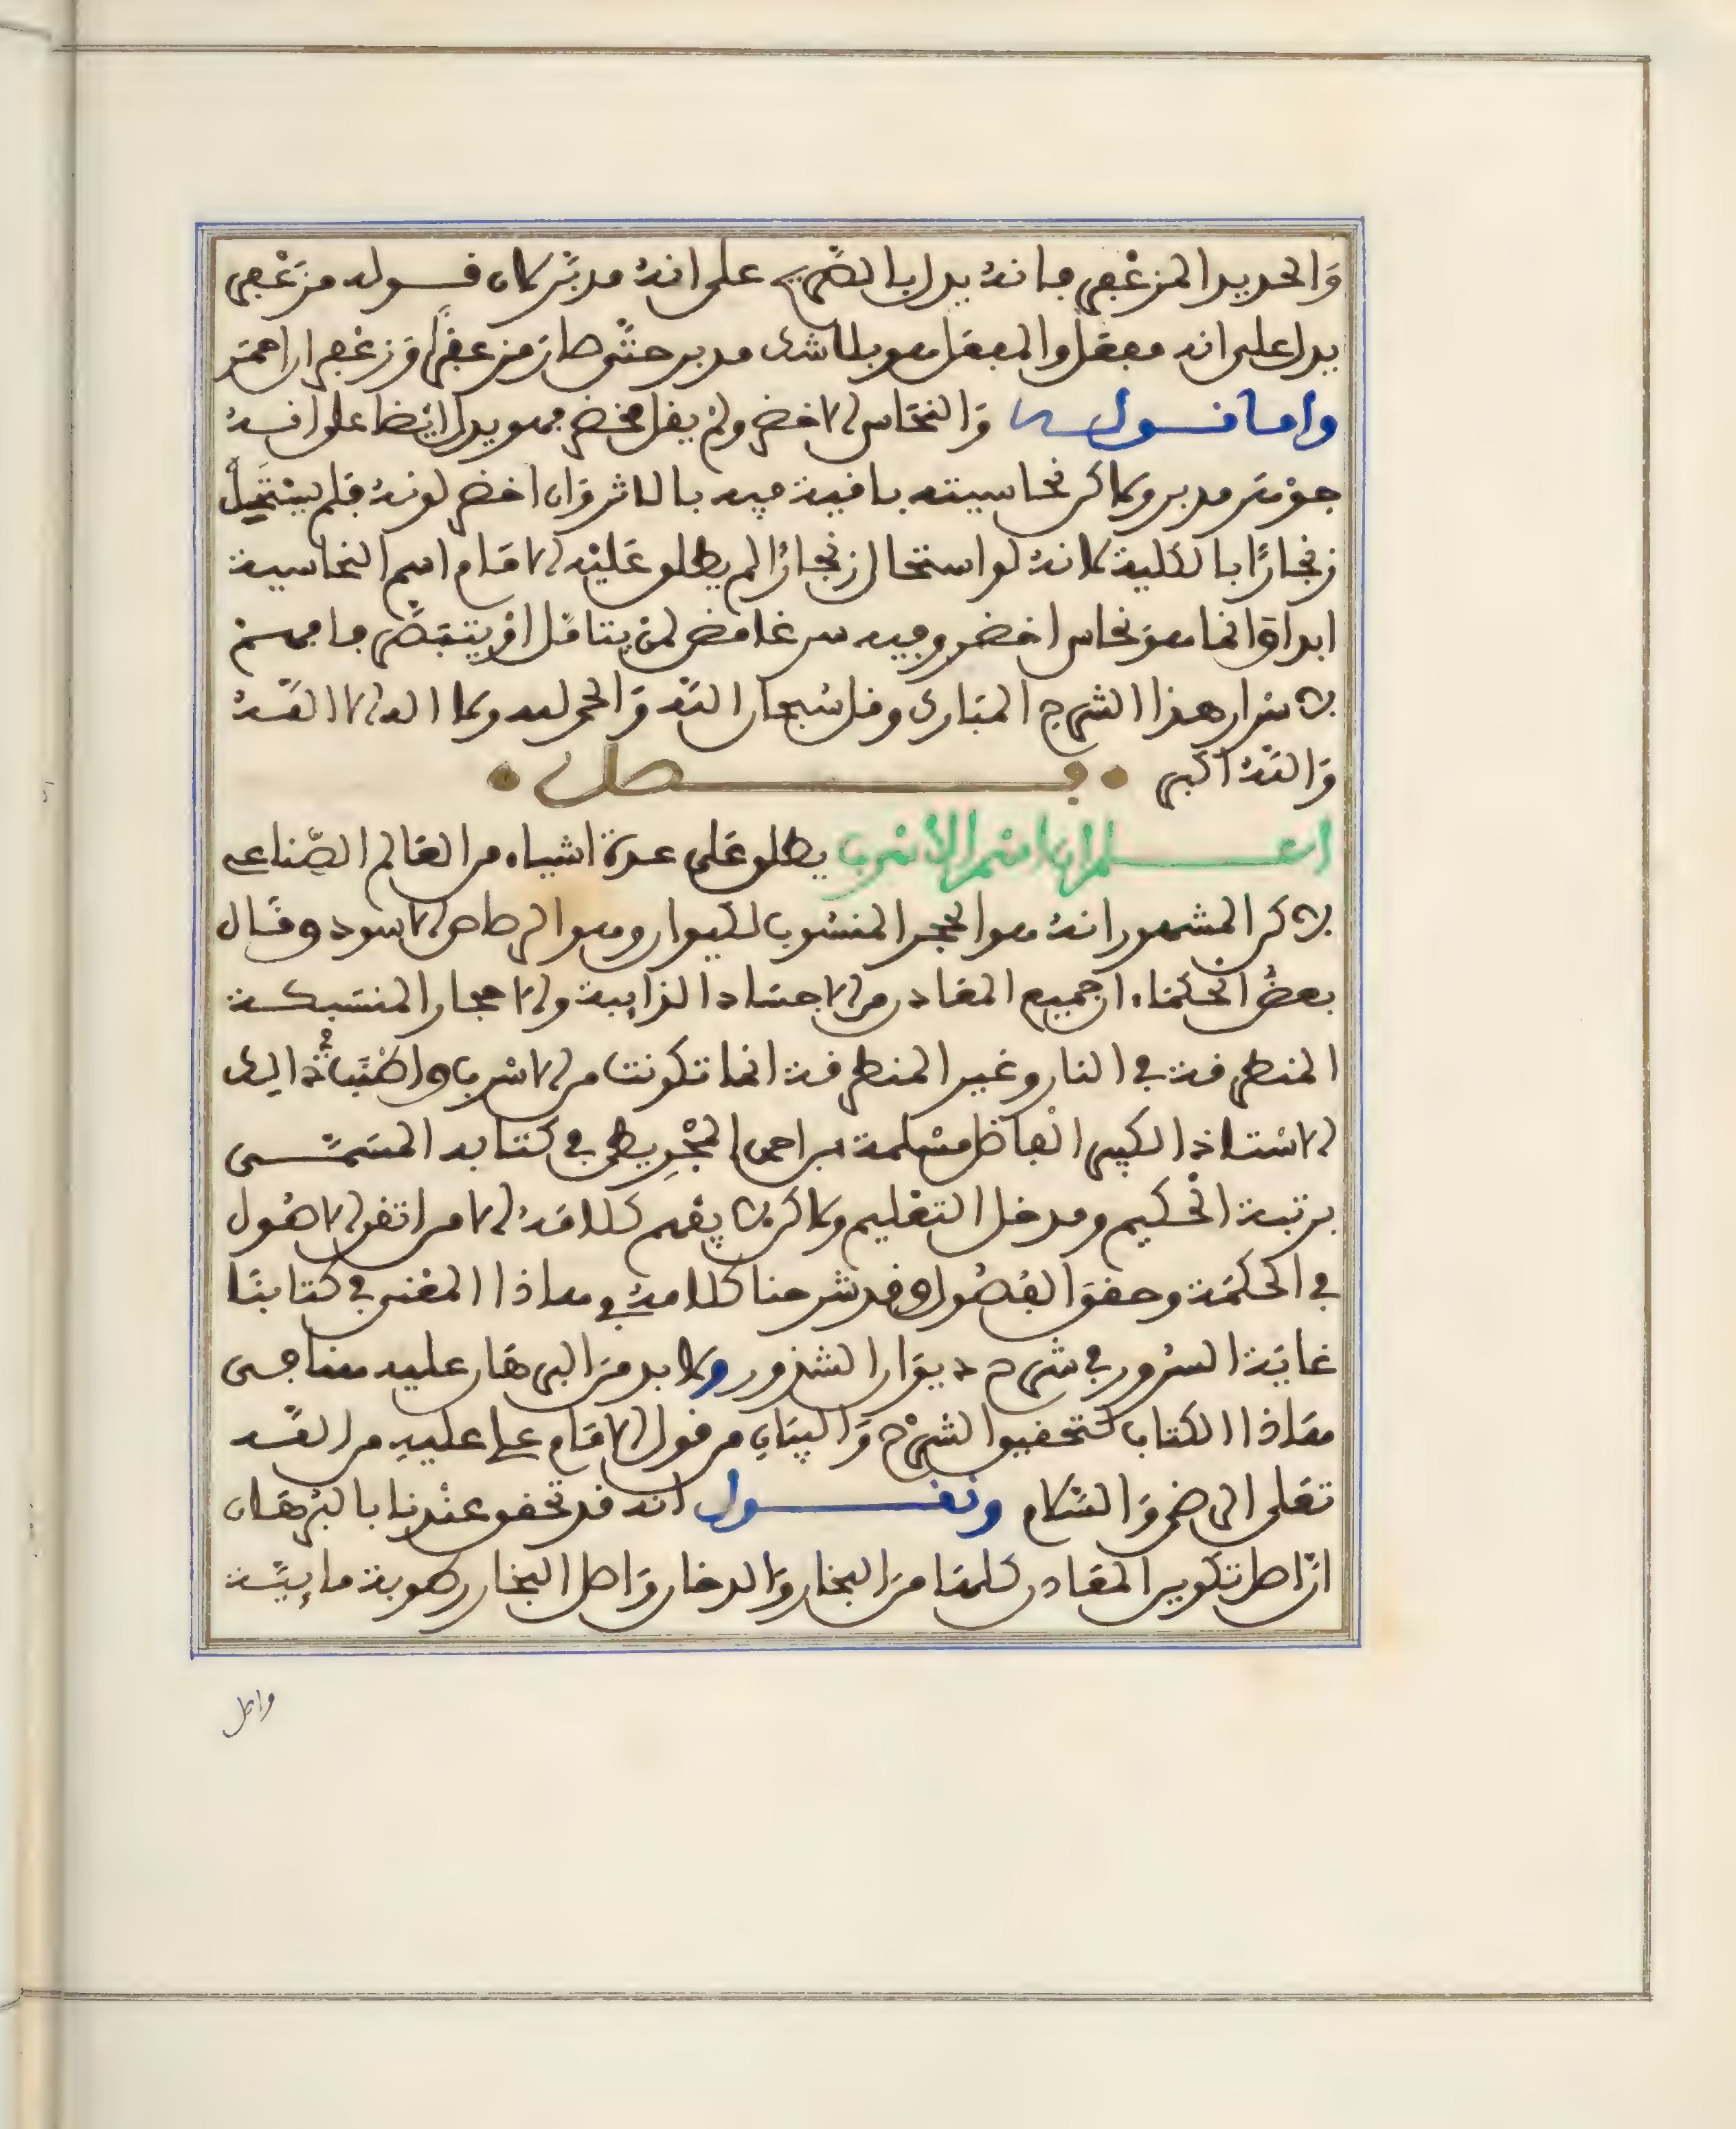 وَالحديد المزعْفر فانهُ يدل بالتصْريح على انهُ مدبّر لان قوله مزَعْفر
يدل على انه مفعّل والمفعَل هو بلا شك مدبر حتّى صارَ مزعفرًا وَزعْفرانا حمَر
واما قوله وَالنحَاس الاخضر ولمْ يقل مخضر فهو يدل ايْضا على انه
جوْهَر مدبر ولاكن نحاسيته باقية فيه بالاثر وَان اخضر لونهُ فلم يسْتَحِلْ
زنجارًا بالكلية لانهُ لو استحال زنجارًا لم يطلق عَليْه الامَام اسم النحاسية
ابدا وَانما هوَ نحاس اخضر وفيه سر غامض لمن يتامّل اوْ يتبَصّر فافهم
من اسرار هذا الشرح المبَارك وقل سُبحان اللّه وَالحمد لله ولا اله الا اللّهُ
وَاللّهُ اكبر • فصل •
اعلم ان اسْم الأسْرب يطلق عَلى عدة اشياء من العَالم الصّناعي
لاكن المشهور انهُ هو الحجر المنسُوب لكيوان وهو الرصاص الاسود وقَال
بعضُ الحُكمَاء ان جميع المعَادن من الاجسَاد الذايبة والاحجار المنسَبكة
المنطرقة في النار وغير المنطرقة انما تكونت من الاسْرب واطنَبَ في ذالك
الاسْتاذ الكبير الفاضل مسْلمة بن احمد المجْرِيطي في كتابه المسَمّى
برتبة الحْكيم ومدخل التعْليم ولاكن لا يفهم كلامَهُ الا من اتقن الاصُول
في الحكمَة وحقق الفُصُول وقد شرحنا كلامهُ في هاذا المعْنى في كتابنَا
غايَة السرُور في شرح ديوَان الشذور ولا بد منَ البرهَان عليه هنا في
هَاذا الكتاب لتحقيق الشرْح وَالبيَان من قول الامَام علي عليه من اللّه
تعَلى الرضى وَالسَّلام ونقول انه قد تحقق عنْدنا بالبُرْهَان
انّ اصل تكوين المعَادن كلهَا منَ البخار وَالدخان وَاصل البخار رطوبة مايِيّة
واصل